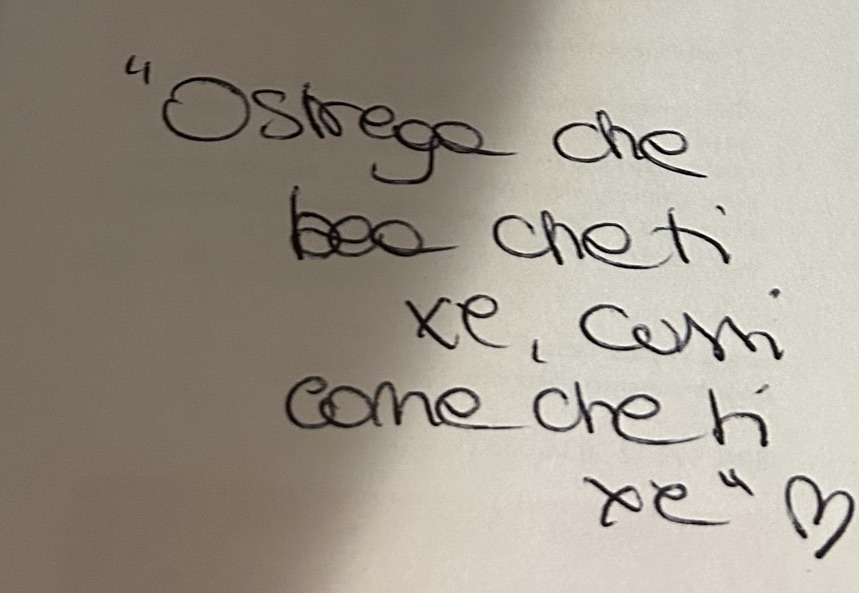 "Ostrega che
bea che ti
xe, cussi
come che ti
xe" ♡